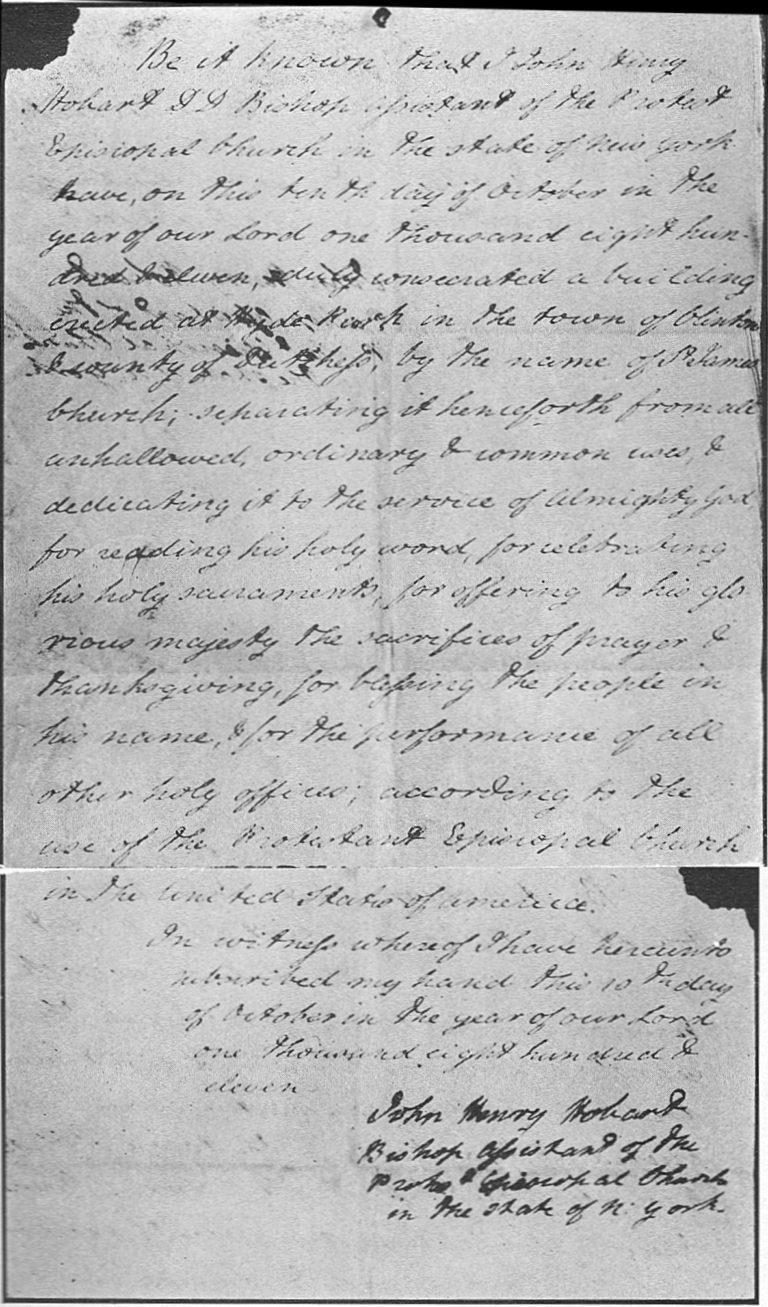 Be it known that I John Henry
Hobart D D Bishop assistant of the Protest
Episcopal Church in the state of New York
have, on this tenth day of October in the
year of our Lord one thousand eight hun-
dred & eleven, duly consecrated a building
erected at Hyde Park in the town of Clinton
& county of Dutchess, by the name of St James
Church; separating it henceforth from all
unhallowed, ordinary & common uses, &
dedicating it to the service of Almighty God
for reading his holy word, for celebrating
his holy sacraments, for offering to his glo
rious majesty the sacrifices of prayer &
thanksgiving, for blessing the people in
his name, & for the performance of all
other holy offices; according to the
use of the Protestant Episcopal Church
in the United States of america.
In witness whereof I have hereunto
subscribed my hand this 10th day
of October in the year of our Lord
one thousand eight hundred &
eleven
John Henry Hobart
Bishop assistant of the
Episcopal Church
in the state of N. York.